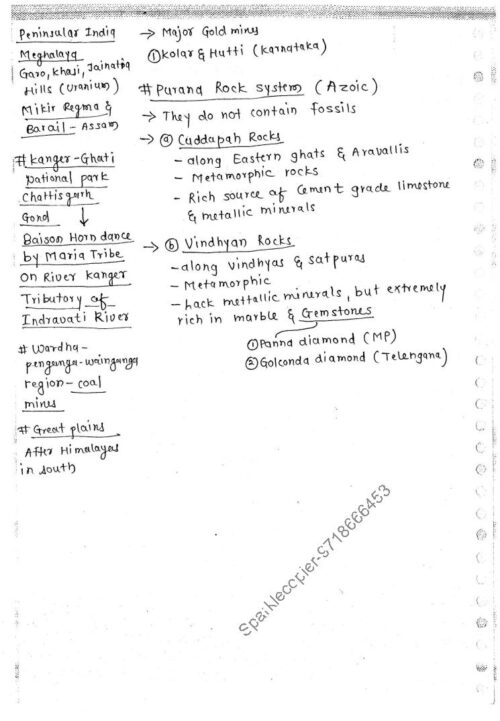 Peninsular India
Meghalaya
Garo, Khasi, Jaintia
Hills (Uranium)
Mikir Regma &
Barail - Assam
# Kanger-Ghati
National park
Chattisgarh
↓
Gond
Baison Horn dance
by Maria Tribe
on River kanger
Tributory of
Indravati River
# Wardha-
penganga-wainganga
region - coal
mines
# Great plains
After Himalayas
in south
→ Major Gold mines
① kolar & Hutti (karnataka)
# Purana Rock system (Azoic)
→ They do not contain fossils
→ ⓐ Cuddapah Rocks
- along Eastern ghats & Aravallis
- Metamorphic rocks
- Rich source of Cement grade limestone
& metallic minerals
→ ⓑ Vindhyan Rocks
- along vindhyas & satpuras
- Metamorphic
- Lack mettallic minerals, but extremely
rich in marble & Gemstones
① Panna diamond (MP)
② Golconda diamond (Telengana)